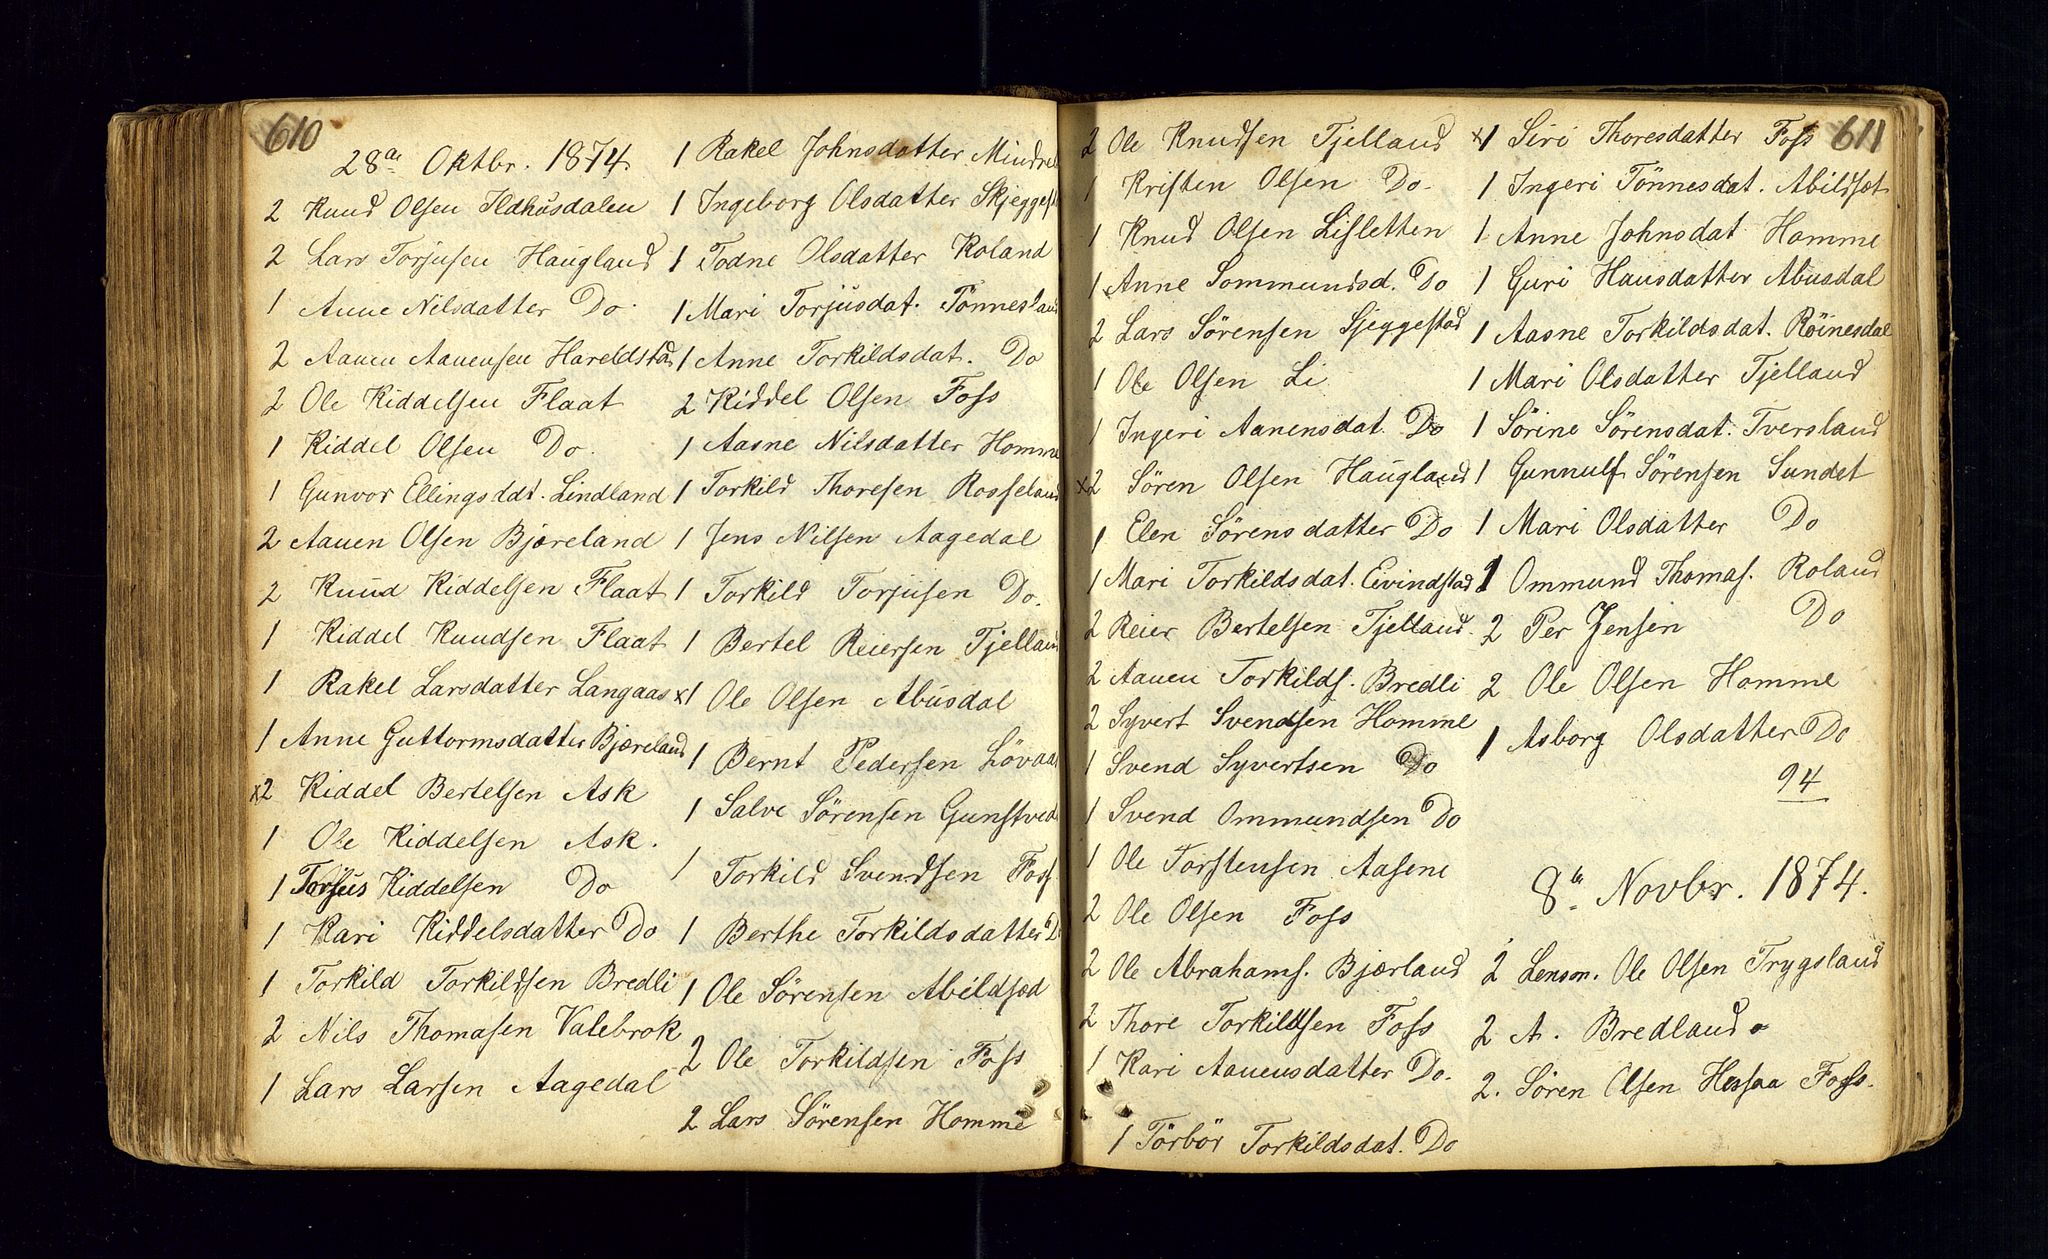 610
28de Oktbr. 1874.
2 Knud Olsen Ildhusdalen
2 Lars Torjusen Haugland
1 Anne Nilsdatter Do.
2 Aanen Aanensen Hareldstad
2 Ole Kiddelsen Flaat
1 Kiddel Olsen Do.
1 Gunvor Ellingsddt. Lindland
2 Aanen Olsen Bjæreland
2 Knud Kiddelsen Flaat
1 Kiddel Knudsen Flaat
1 Rakel Larsdatter Langaas
1 Anne Guttormsdatter Bjæreland
x2 Kiddel Bertelsen Ask
1 Ole Kiddelsen Ask.
1 Torjus Kiddelsen Do
1 Kari Kiddelsdatter Do
1 Torkild Torkildsen Bredli
2 Nils Thomasen Valebrok
1 Lars Larsen Aagedal
1 Rakel Johnsdatter
1 Ingeborg Olsdatter Skjeggest
1 Todne Olsdatter Roland
1 Mari Torjusdat. Tönnesland
1 Anne Torkildsdat. Do
2 Kiddel Olsen Foss
1 Aasne Nilsdatter Homme
1 Torkild Thoresen Rosseland
1 Jens Nilsen Aagedal
1 Torkild Torjusen Do.
1 Bertel Reiersen Tjelland
x1 Ole Olsen Abusdal
1 Bernt Pedersen Lövaas
1 Salve Sörensen Gunstved
1 Torkild Svendsen Foss
1 Berthe Torkildsdatter D
1 Ole Sörensen Abildsød
2 Ole Torkildsen Foss
2 Lars Sörensen Homme
611
2 Ole Knudsen Tjelland
1 Kristen Olsen Do.
1 Knud Olsen Lisletten
1 Anne Sommundsd. Do
2 Lars Sörensen Sjeggestad
1 Ole Olsen Li
1 Ingeri Aanensdat. Do
x2 Sören Olsen Haugland
1 Elen Sörensdatter Do
1 Mari Torkildsdat. Eivindstad
2 Reier Bertelsen Tjelland.
2 Aanen Torkilds. Bredli
2 Syvert Svendsen Homme
1 Svend Syvertsen Do
1 Svend Ommundsen Do
1 Ole Torstensen Aasene
2 Ole Olsen Foss
2 Ole Abrahams. Bjærland
2 Thore Torkildsen Foss
1 Kari Aanensdatter Do.
1 Törbör Torkildsdat. Do
x1 Siri Thoresdatter Foss
1 Ingeri Tönnesdat. Abildsøt
1 Anne Johnsdat Homme
1 Guri Hansdatter Abusdal
1 Aasne Torkildsdat. Röinesdal
1 Mari Olsdatter Tjelland
1 Sörine Sörensdat. Tversland
1 Gunnulf Sörensen Sundet
1 Mari Olsdatter Do
1 Ommund Thomas. Roland
2 Per Jensen Do
2 Ole Olsen Homme
1 Asborg Olsdatter Do
94
8de Novbr. 1874.
2 Lensm. Ole Olsen Trygsland
2 A. Bredland
2. Sören Olsen Hessaa Foss.